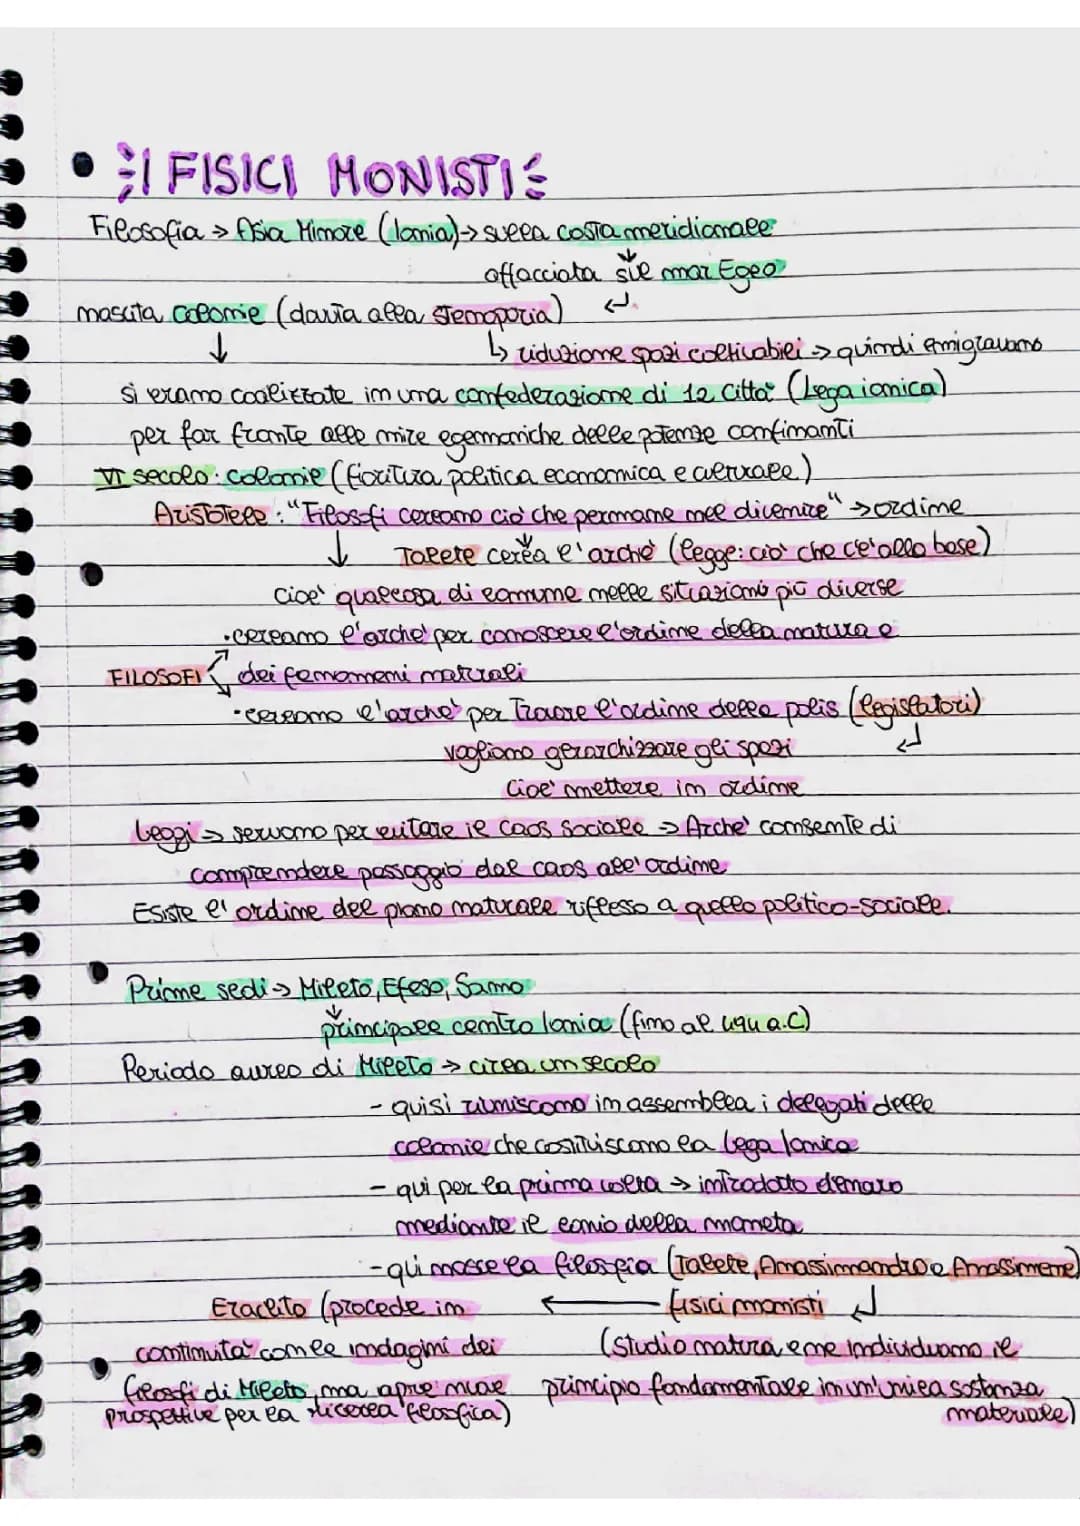 • I FISICI MONISTI
Filosofia → Asia Minore (Ionia) → sulla costa meridionale
↓
affacciata sul mar Egeo
nascita colonie (dovuta alla stenoporia) ↵
↓ ↳ riduzione spazi coltivabili → quindi emigravano
si erano coalizzate in una confederazione di 12 città (Lega ionica)
per far fronte alle mire egemoniche delle potenze confinanti
VI secolo: colonie (fioritura politica economica e culturale)
Aristotele: "Filosofi cercano ciò che permane nel divenire" → ordine
↓ Talete cerca l'archè (legge: ciò che c'è alla base)
cioè qualcosa di comune nelle situazioni più diverse
• cercano l'archè per conoscere l'ordine della natura e
FILOSOFI dei fenomeni naturali
• cercano l'archè per trovare l'ordine della polis (legislatori)
vogliono gerarchizzare gli spazi ↵
cioè mettere in ordine
Leggi → servono per evitare il caos sociale → Archè consente di
comprendere passaggio dal caos all'ordine
Esiste l'ordine del piano naturale riflesso a quello politico-sociale.
Prime sedi → Mileto, Efeso, Samo
↓
principale centro Ionia (fino al 494 a.C)
Periodo aureo di Mileto → circa un secolo
- qui si riuniscono in assemblea i delegati delle
colonie che costituiscono la Lega Ionica
- qui per la prima volta → introdotto denaro
mediante il conio della moneta
- qui nasce la filosofia (Talete, Anassimandro e Anassimene)
Eraclito (procede in ← fisici monisti ↵
continuità con le indagini dei (Studio natura e ne individuano il
filosofi di Mileto, ma apre nuove principio fondamentale in un'unica sostanza
prospettive per la ricerca filosofica) materiale)